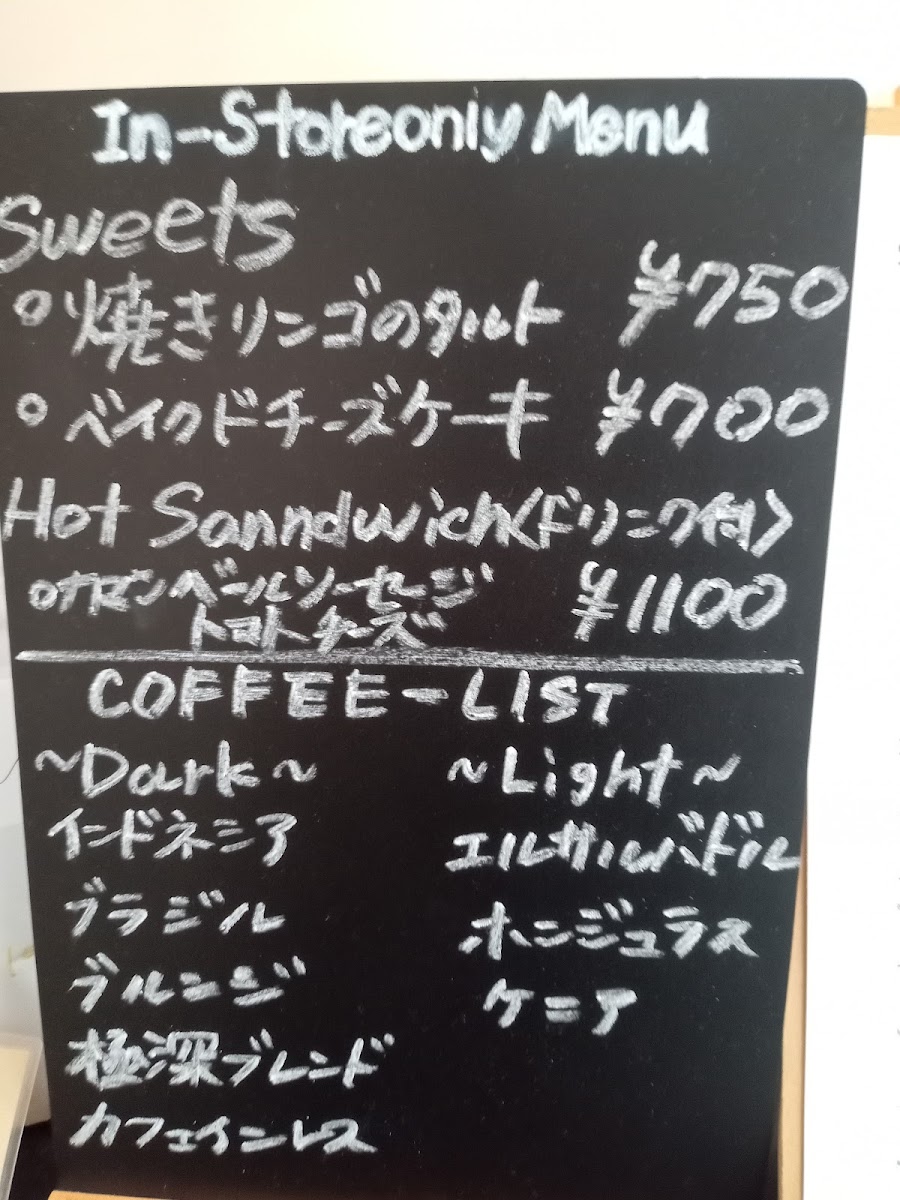 In-Storeonly Menu
Sweets
○焼きリンゴのタルト ¥750
○ベイクドチーズケーキ ¥700
Hot Sanndwich〈ドリンク付〉
○カマンベールソーセージ ¥1100
トマトチーズ
COFFEE-LIST
~Dark~ ~Light~
インドネシア エルサルバドル
ブラジル ホンジュラス
ブルンジ ケニア
極深ブレンド
カフェインレス